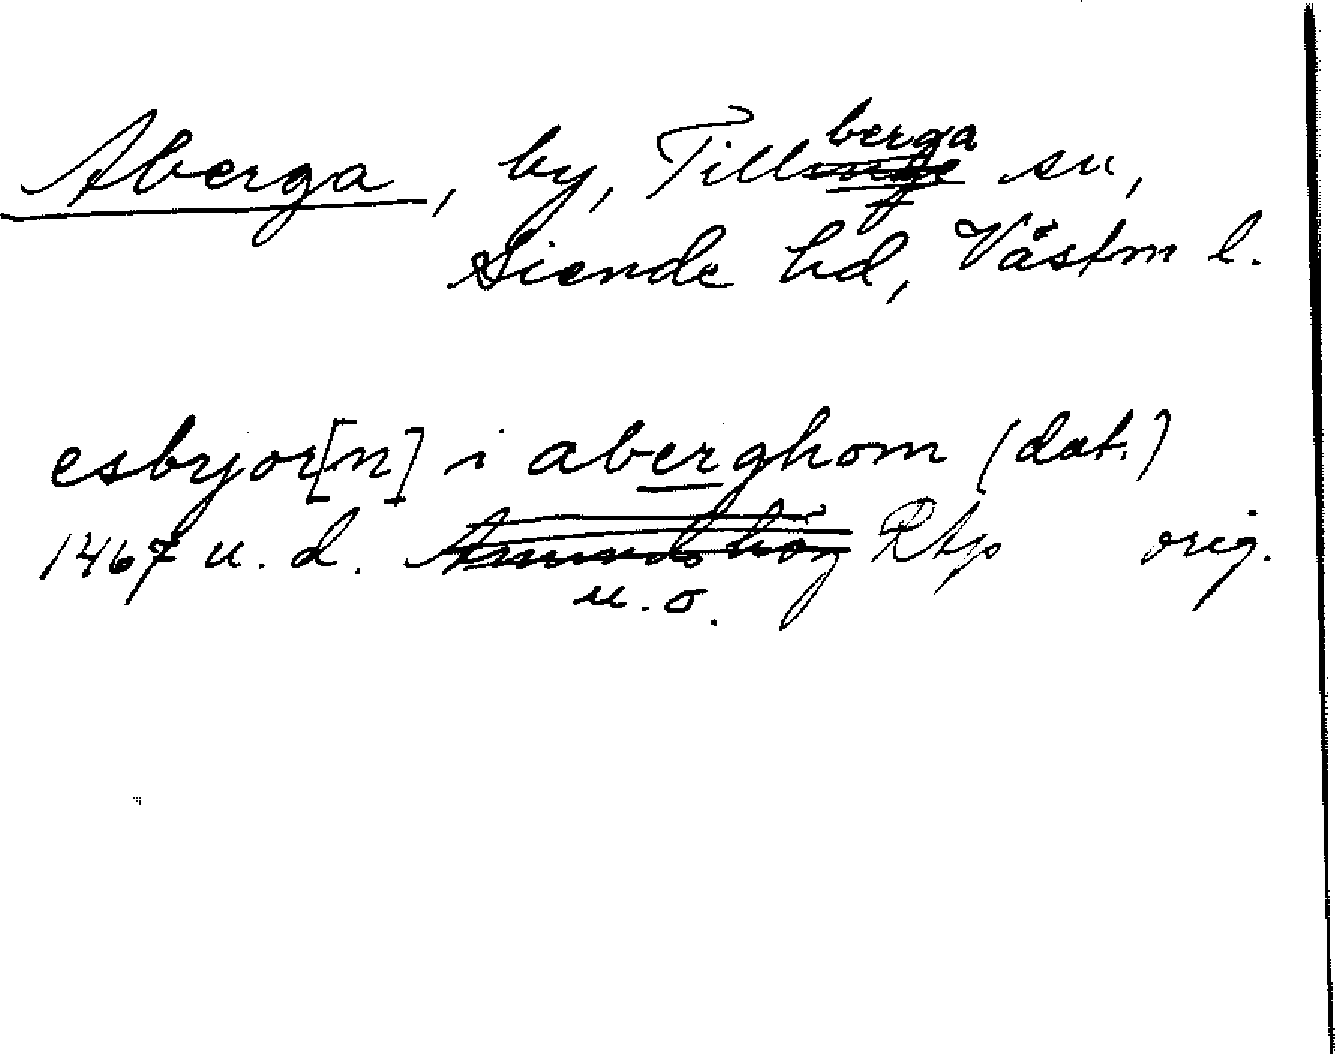 Aberga, by, Tillberga sn,
Siende hd, Västm l.
esbyor[n] i aberghom (dat.)
1467 u. d. Amundshög Rap orig.
u. o.